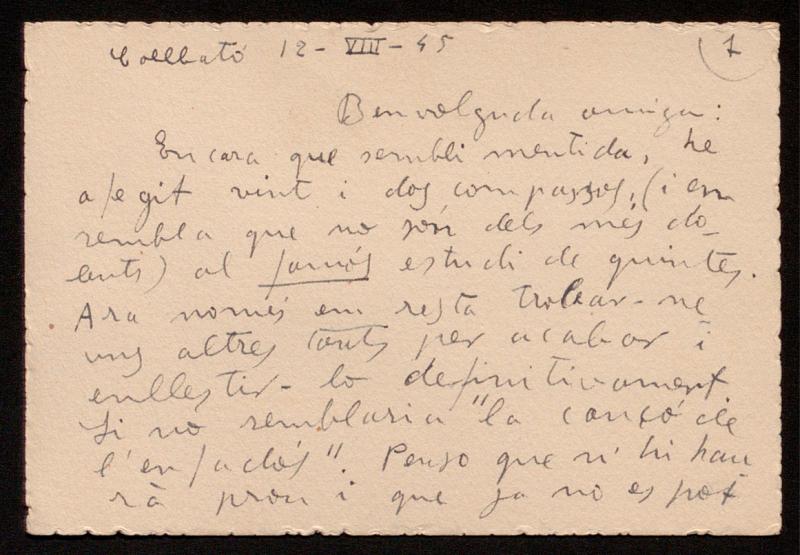 Collbató 12-VIII-45
1
Benvolguda amiga:
Encara que sembli mentida, he
afegit vint i dos compassos, (i em
sembla que no són dels més do-
lents) al famós estudi de quintes.
Ara només em resta trobar-ne
uns altres tants per acabar i
enllestir-lo definitivament
Si no semblaria "la cançó de
l'enfadós". Penso que n'hi hau
rà prou i que ja no es pot